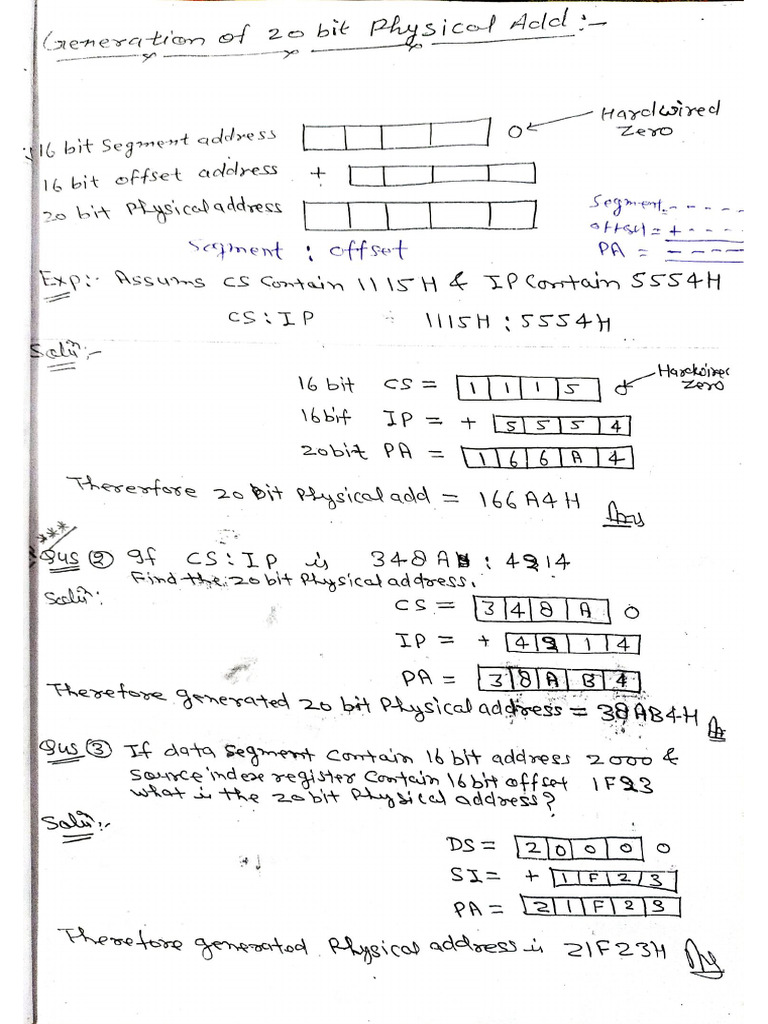 Generation of 20 bit Physical Add :-
Hardwired
Zero
16 bit Segment address 0
16 bit offset address +
20 bit Physical address
Segment - - - - -
offset = + - - - -
PA = - - - - -
Segment : offset
Exp:- Assums CS Contain 1115H & IP Contain 5554H
CS : IP 1115H : 5554H
Soluⁿ:-
Hardwired
Zero
16 bit CS = 1 1 1 5 0
16 bit IP = + 5 5 5 4
20 bit PA = 1 6 6 A 4
Thererfore 20 Bit Physical add = 166A4H Ans
***
Qus (2) If CS : IP is 348A : 4214
Find the 20 bit Physical address.
Soluⁿ:
CS = 3 4 8 A 0
IP = + 4 2 1 4
PA = 3 8 A B 4
Therefore generated 20 bit Physical address = 38AB4H
Qus (3) If data Segment Contain 16 bit address 2000 &
Source index register Contain 16 bit offset 1F23
what is the 20 bit Physical address?
Soluⁿ:-
DS = 2 0 0 0 0
SI = + 1 F 2 3
PA = 2 1 F 2 3
Therefore generated Physical address is 21F23H